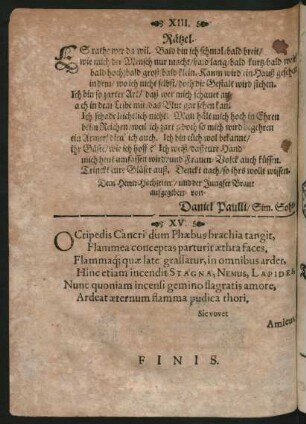 XIII.
Rätzel.
ES rathe wer da wil. Bald bin ich schmal/bald breit/
wie mich der Mensch nur macht/bald lang/bald kurtz/bald
bald hoch/bald groß/bald klein. Kaum wird ein Hauß
in dem/ wo ich nicht selbst/doch die Gestalt wird stehen.
Ich bin so zarter Art/ daß wer mich schauet
ach in dem Leibe mir/das Blut gar sehen kan.
Ich schade leichtlich nicht. Man hält mich hoch in Ehren
beym Reichen/weil ich zart/doch so mich wird begehren
ein Armer/ den' ich auch. Ich bin euch wol bekannt/
ihr Gäste/ wie ich hoff' Ich weiß/daß eure Hand/
mich heut umfassen wird/und Frauen-Volck auch küssen.
Trinckt eure Gläser auß. Denckt nach/so ihrs wollt wissen.
Dem Herrn Hochzeiter/ und der Jungfer Braut
aufgegeben von
Daniel Paulli/ Sim. Sohn
XV.
OCtipedis Cancri dum Phœbus brachia tangit,
Flammea conceptas parturit æthra faces,
Flammaq; quæ late grassatur, in omnibus ardet,
Hinc etiam incendit STAGNA, NEMUS, LAPIDES
Nunc quoniam incensi gemino flagratis amore,
Ardeat æternum flamma pudica thori,
Sic vovet
Amicus
FINIS.